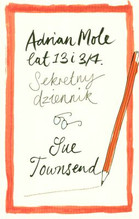 Adrian Mole
lat 13 i 3/4.
Sekretny
dziennik
Sue
Townsend